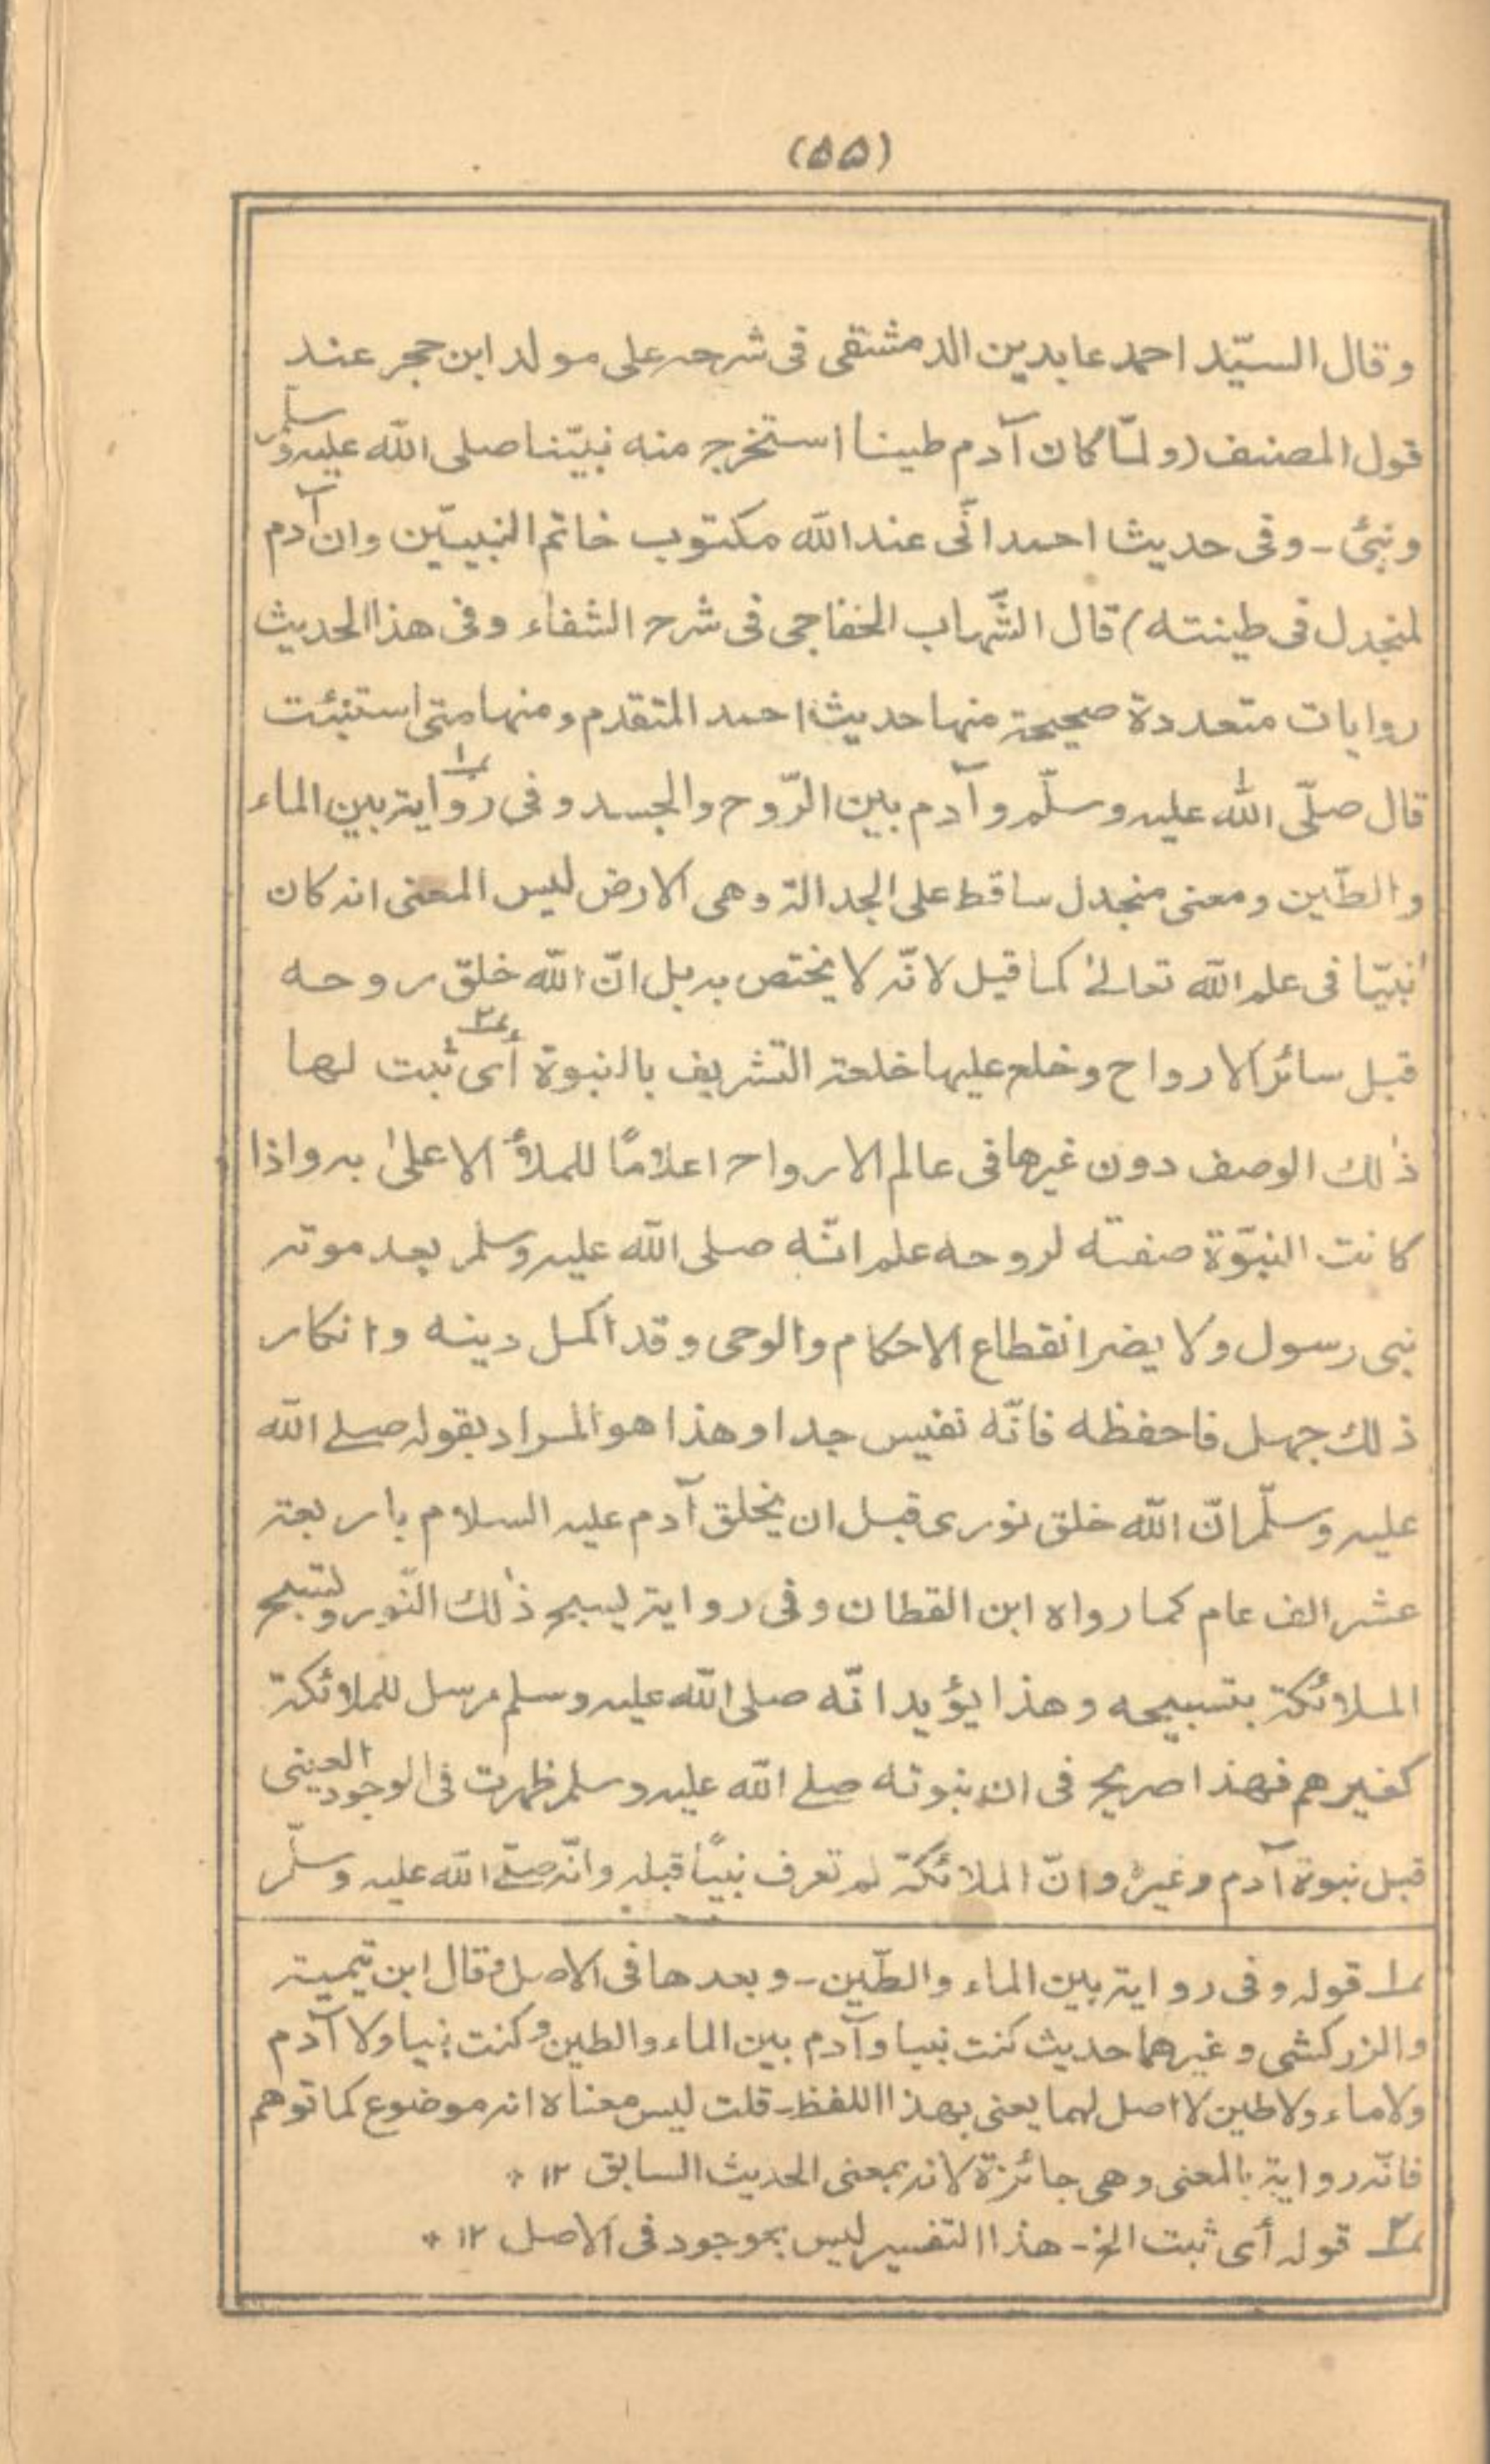 (۵۵)
وقال السيّد احمد عابدين الدمشقى فى شرحه على مولد ابن حجر عند
قول المصنف (ولمّا كان آدم طينا استخرج منه نبيّنا صلى الله عليه وسلّم
ونبئ - وفى حديث احمد انّى عند الله مكتوب خاتم النبييّن وان آدم
لمنجدل فى طينته) قال الشّهاب الخفاجى فى شرح الشفاء وفى هذا الحديث
روايات متعددة صحيحة منها حديث احمد المتقدم ومنها متى استنبئت
قال صلّى الله عليه وسلّم وآدم بين الرّوح والجسد وفى رواية ؂۱ بين الماء
والطّين ومعنى منجدل ساقط على الجدالة وهى الارض ليس المعنى انه كان
نبيّا فى علم الله تعالىٰ كما قيل لانّه لا يختص به بل انّ الله خلق روحه
قبل سائر الارواح وخلع عليها خلعة التشريف بالنبوة أى ؂۲ ثبت لها
ذٰلك الوصف دون غيرها فى عالم الارواح اعلامًا للملأ الاعلىٰ به واذا
كانت النبوّة صفته لروحه علم انّه صلى الله عليه وسلم بعد موته
نبى رسول ولا يضر انقطاع الاحكام والوحى وقد اكمل دينه وانكار
ذلك جهل فاحفظه فانّه نفيس جدا وهذا هو المراد بقوله صلے الله
عليه وسلّم انّ الله خلق نورى قبل ان يخلق آدم عليه السلام باربعة
عشر الف عام كما رواه ابن القطان وفى رواية يسبح ذٰلك النّور وتسبح
الملائكة بتسبيحه وهذا يؤيد انّه صلى الله عليه وسلم مرسل للملائكة
كغيرهم فهذا صريح فى ان نبوته صلے الله عليه وسلم ظهرت فى الوجود العينى
قبل نبوة آدم وغيره وانّ الملائكة لم تعرف نبيًا قبله وانّه صلّے الله عليه وسلّم
؂۱ قوله وفى رواية بين الماء والطّين - وبعدها فى الاصل وقال ابن تيمية
والزركشى وغيرهما حديث كنت نبيا وآدم بين الماء والطين وكنت نبيا ولا آدم
ولا ماء ولا طين لا اصل لهما يعنى بهذا اللفظ - قلت ليس معناه انه موضوع كما توهم
فانّه رواية بالمعنى وهى جائزة لانه بمعنى الحديث السابق ۱۲ *
؂۲ قوله أى ثبت الخ - هذا التفسير ليس بموجود فى الاصل ۱۲ *